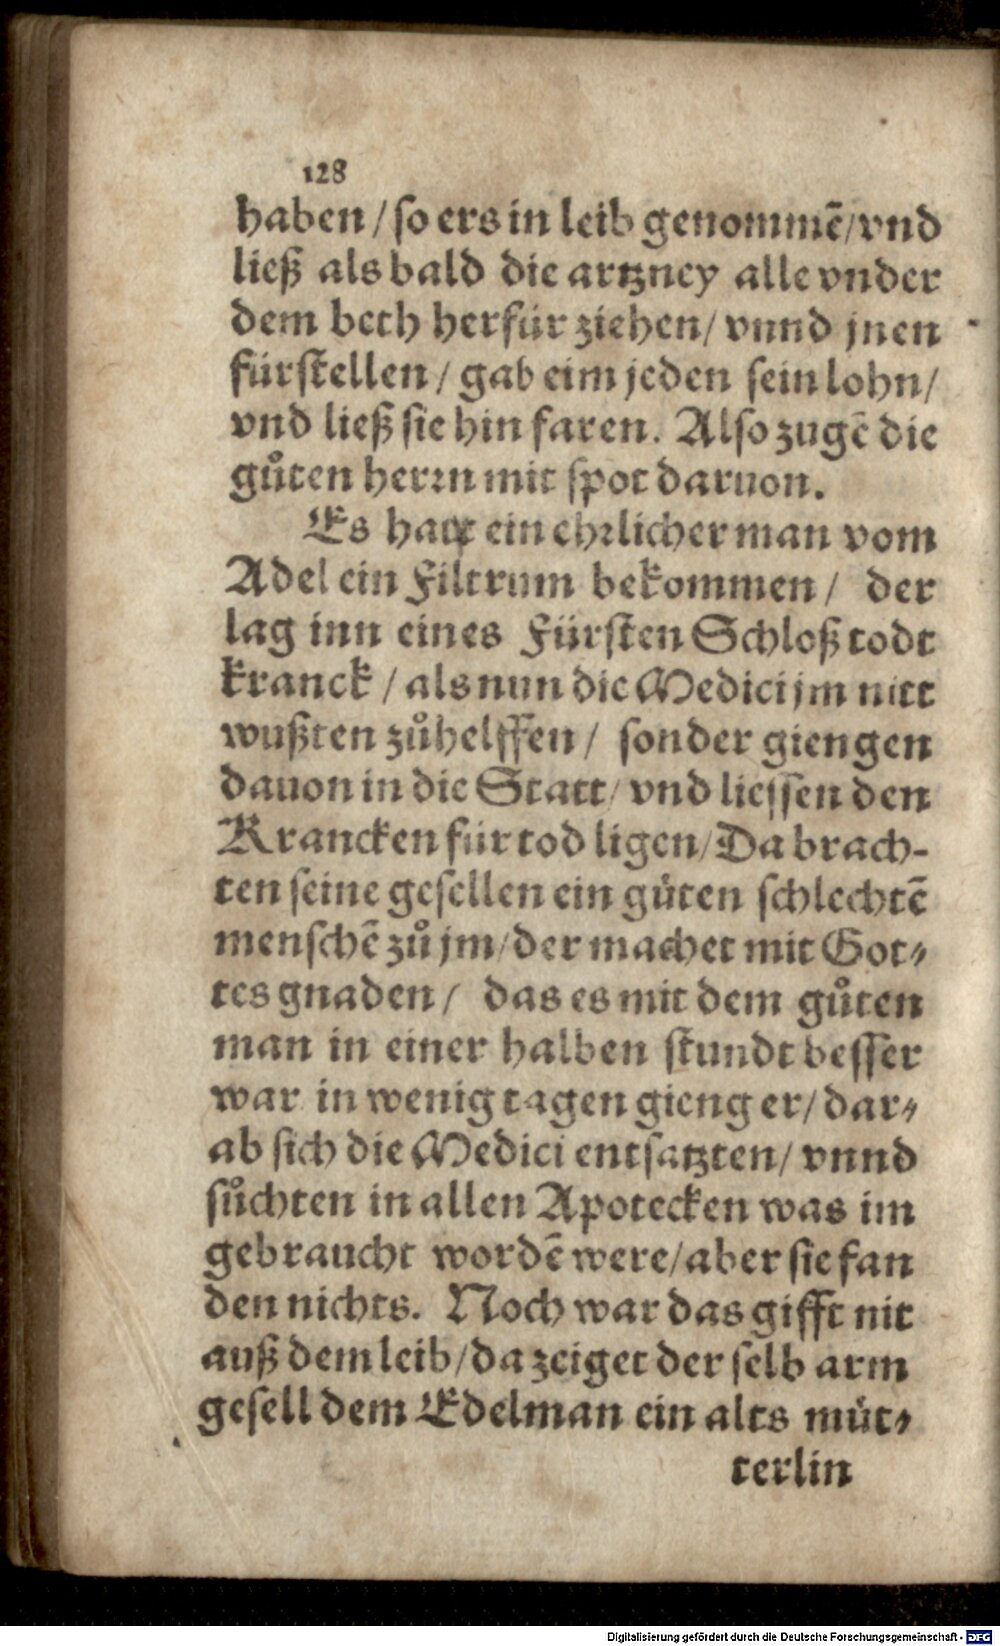 128
haben / so ers in leib genommē / vnd
ließ als bald die artzney alle vnder
dem beth herfür ziehen / vnnd jnen
fürstellen / gab eim jeden sein lohn /
vnd ließ sie hin faren. Also zugē die
gůten herrn mit spot daruon.
Es hatt ein ehrlicher man vom
Adel ein Filtrum bekommen / der
lag inn eines Fürsten Schloß todt
kranck / als nun die Medici jm nitt
wußten zůhelffen / sonder giengen
dauon in die Statt / vnd liessen den
Krancken für tod ligen / Da brach-
ten seine gesellen ein gůten schlechtē
menschē zů jm / der machet mit Got-
tes gnaden / das es mit dem gůten
man in einer halben stundt besser
war in wenig tagen gieng er / dar-
ab sich die Medici entsatzten / vnnd
sůchten in allen Apotecken was im
gebraucht wordē were / aber sie fan
den nichts. Noch war das gifft nit
auß dem leib / da zeiget der selb arm
gesell dem Edelman ein alts müt-
terlin
Digitalisierung gefördert durch die Deutsche Forschungsgemeinschaft - DFG